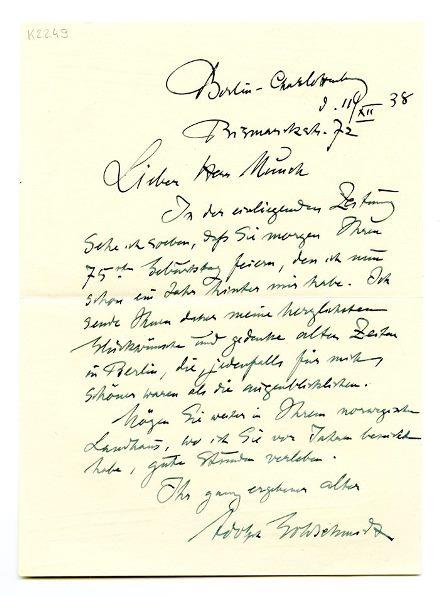 K2249
Berlin-Charlottenburg
d. 11/XII 38
Bismarckstr. 72
Lieber Herr Munch
In der einliegenden Zeitung
sehe ich soeben, daß Sie morgen Ihren
75sten Geburtstag feiern, den ich nun
schon ein Jahr hinter mir habe. Ich
sende Ihnen daher meine herzlichsten
Glückwünsche und gedenke alter Zeiten
in Berlin, die jedenfalls für mich
schöner waren als die augenblicklichen.
Mögen Sie weiter in Ihrem norwegischen
Landhaus, wo ich Sie vor Jahren besucht
habe, gute Stunden verleben.
Ihr ganz ergebener alter
Adolph Goldschmidt